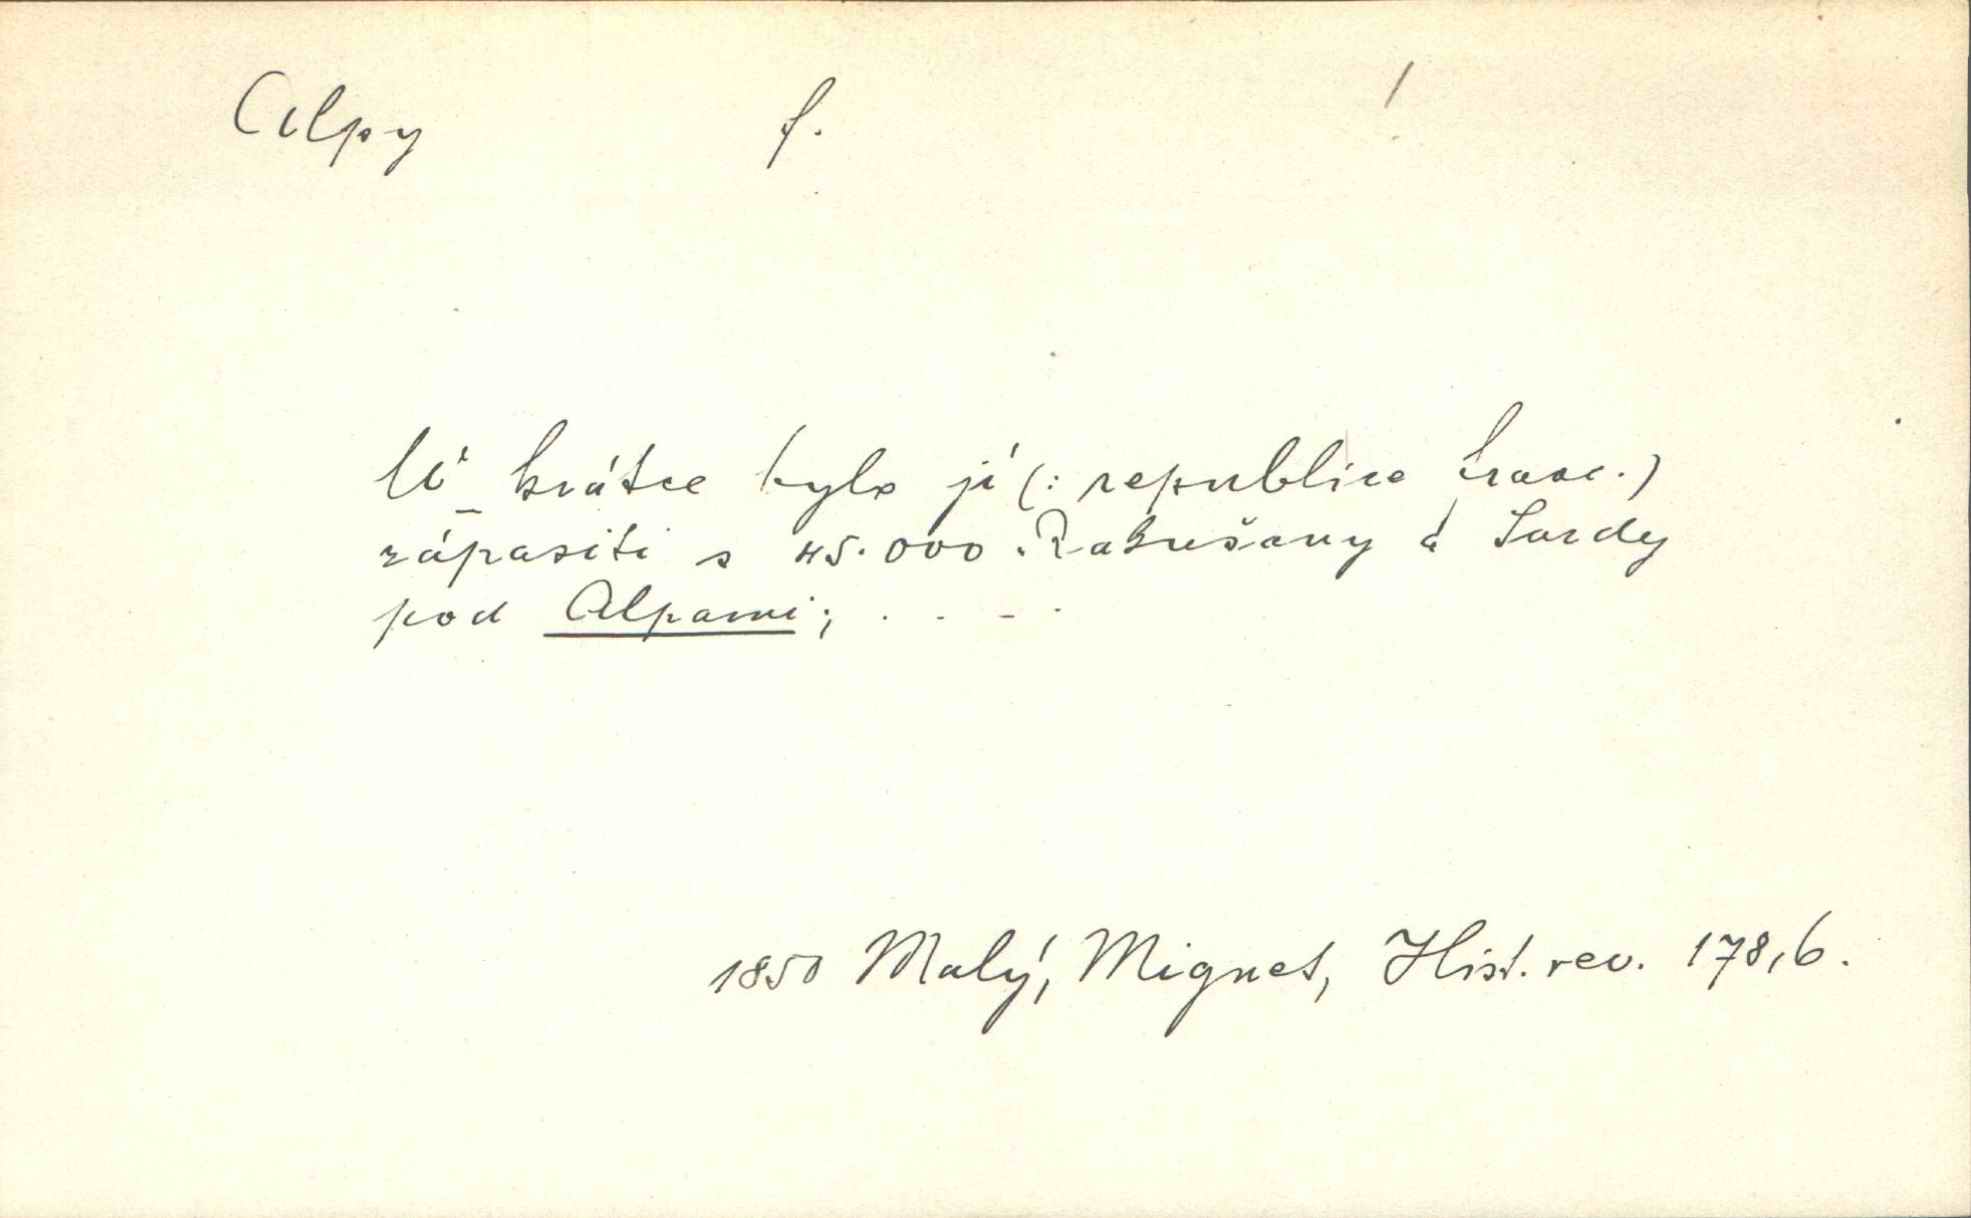 Alpy f. /
V krátce bylo jí (: republice franc.)
zápasiti s 45.000 Rakušany a Sardy
pod Alpami; . . - .
1850 Malý, Mignet, Hist. rev. 178,6.